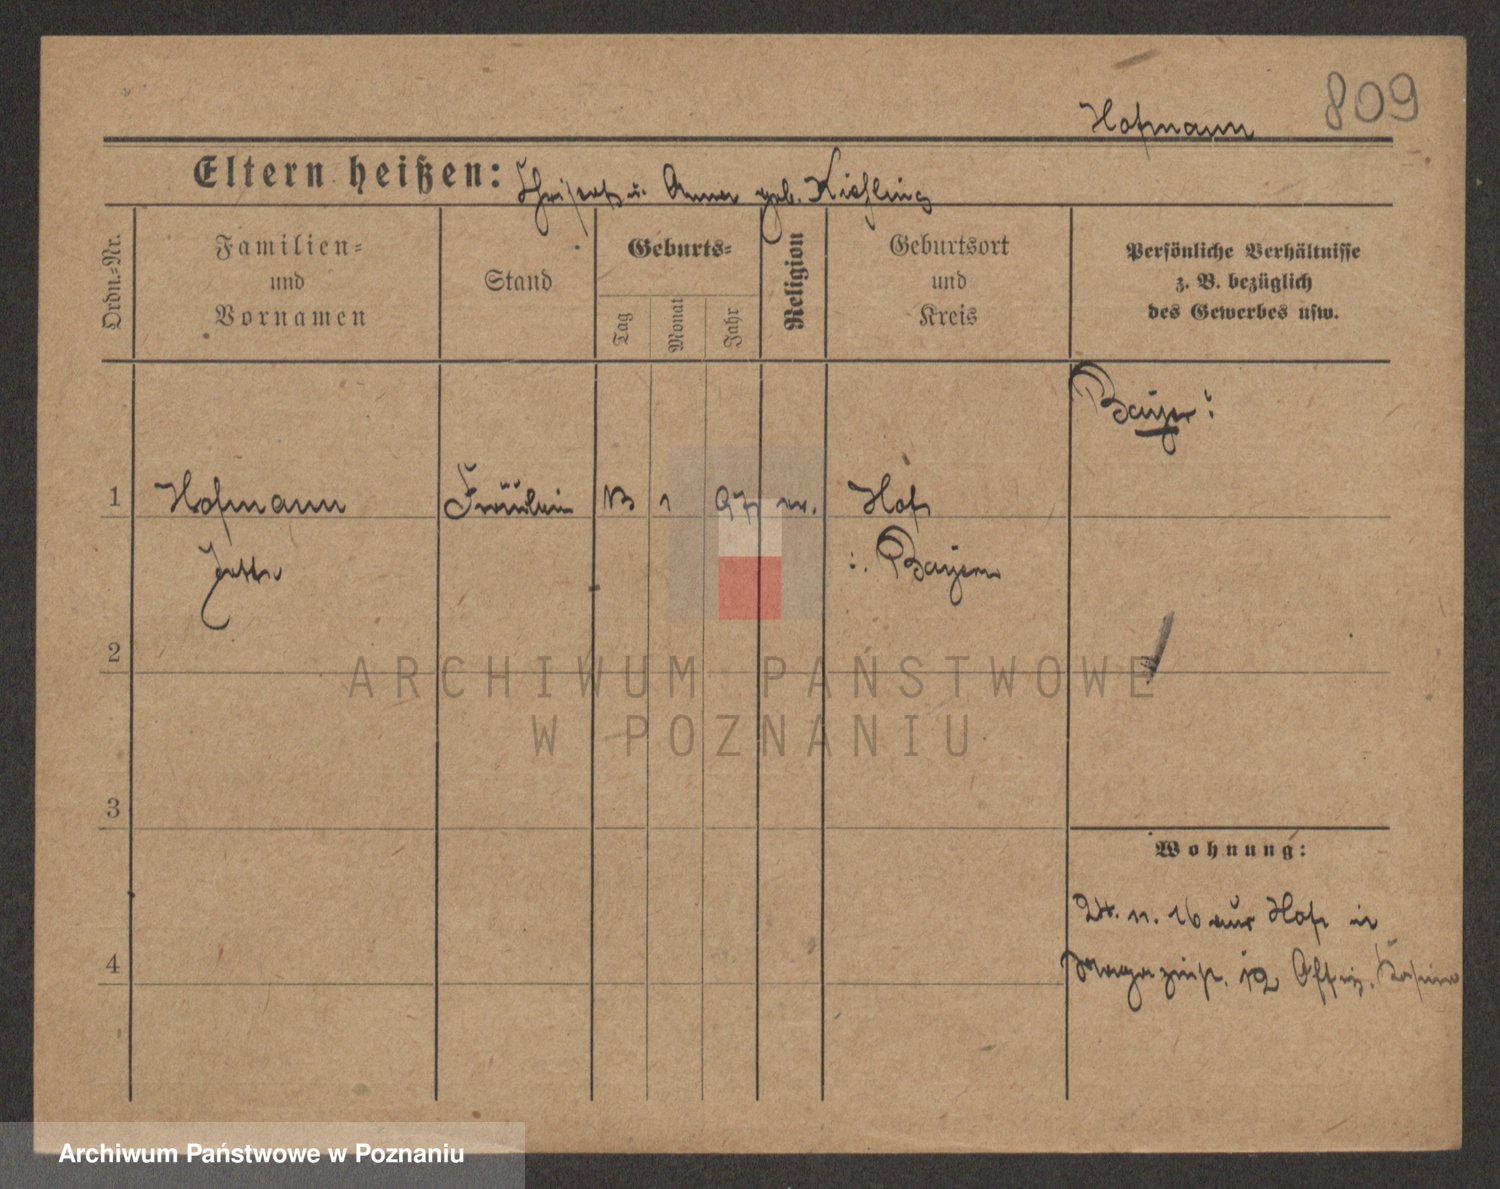 809
Hofmann
Eltern heißen: u. Anna geb. Kießling
Ordn.-Nr.
Familien-
und
Vornamen
Stand
Geburts-
Tag
Monat
Jahr
Religion
Geburtsort
und
Kreis
Persönliche Verhältnisse
z. B. bezüglich
des Gewerbes usw.
Bayer:
1 Hofmann Fräulein 13 1 97 ev. Hof
Jette i. Bayern
2
3
4
Wohnung:
24. 11. 16 aus Hof in
Magazinstr. 12 Offiz. Kasino
ARCHIWUM PAŃSTWOWE
W POZNANIU
Archiwum Państwowe w Poznaniu